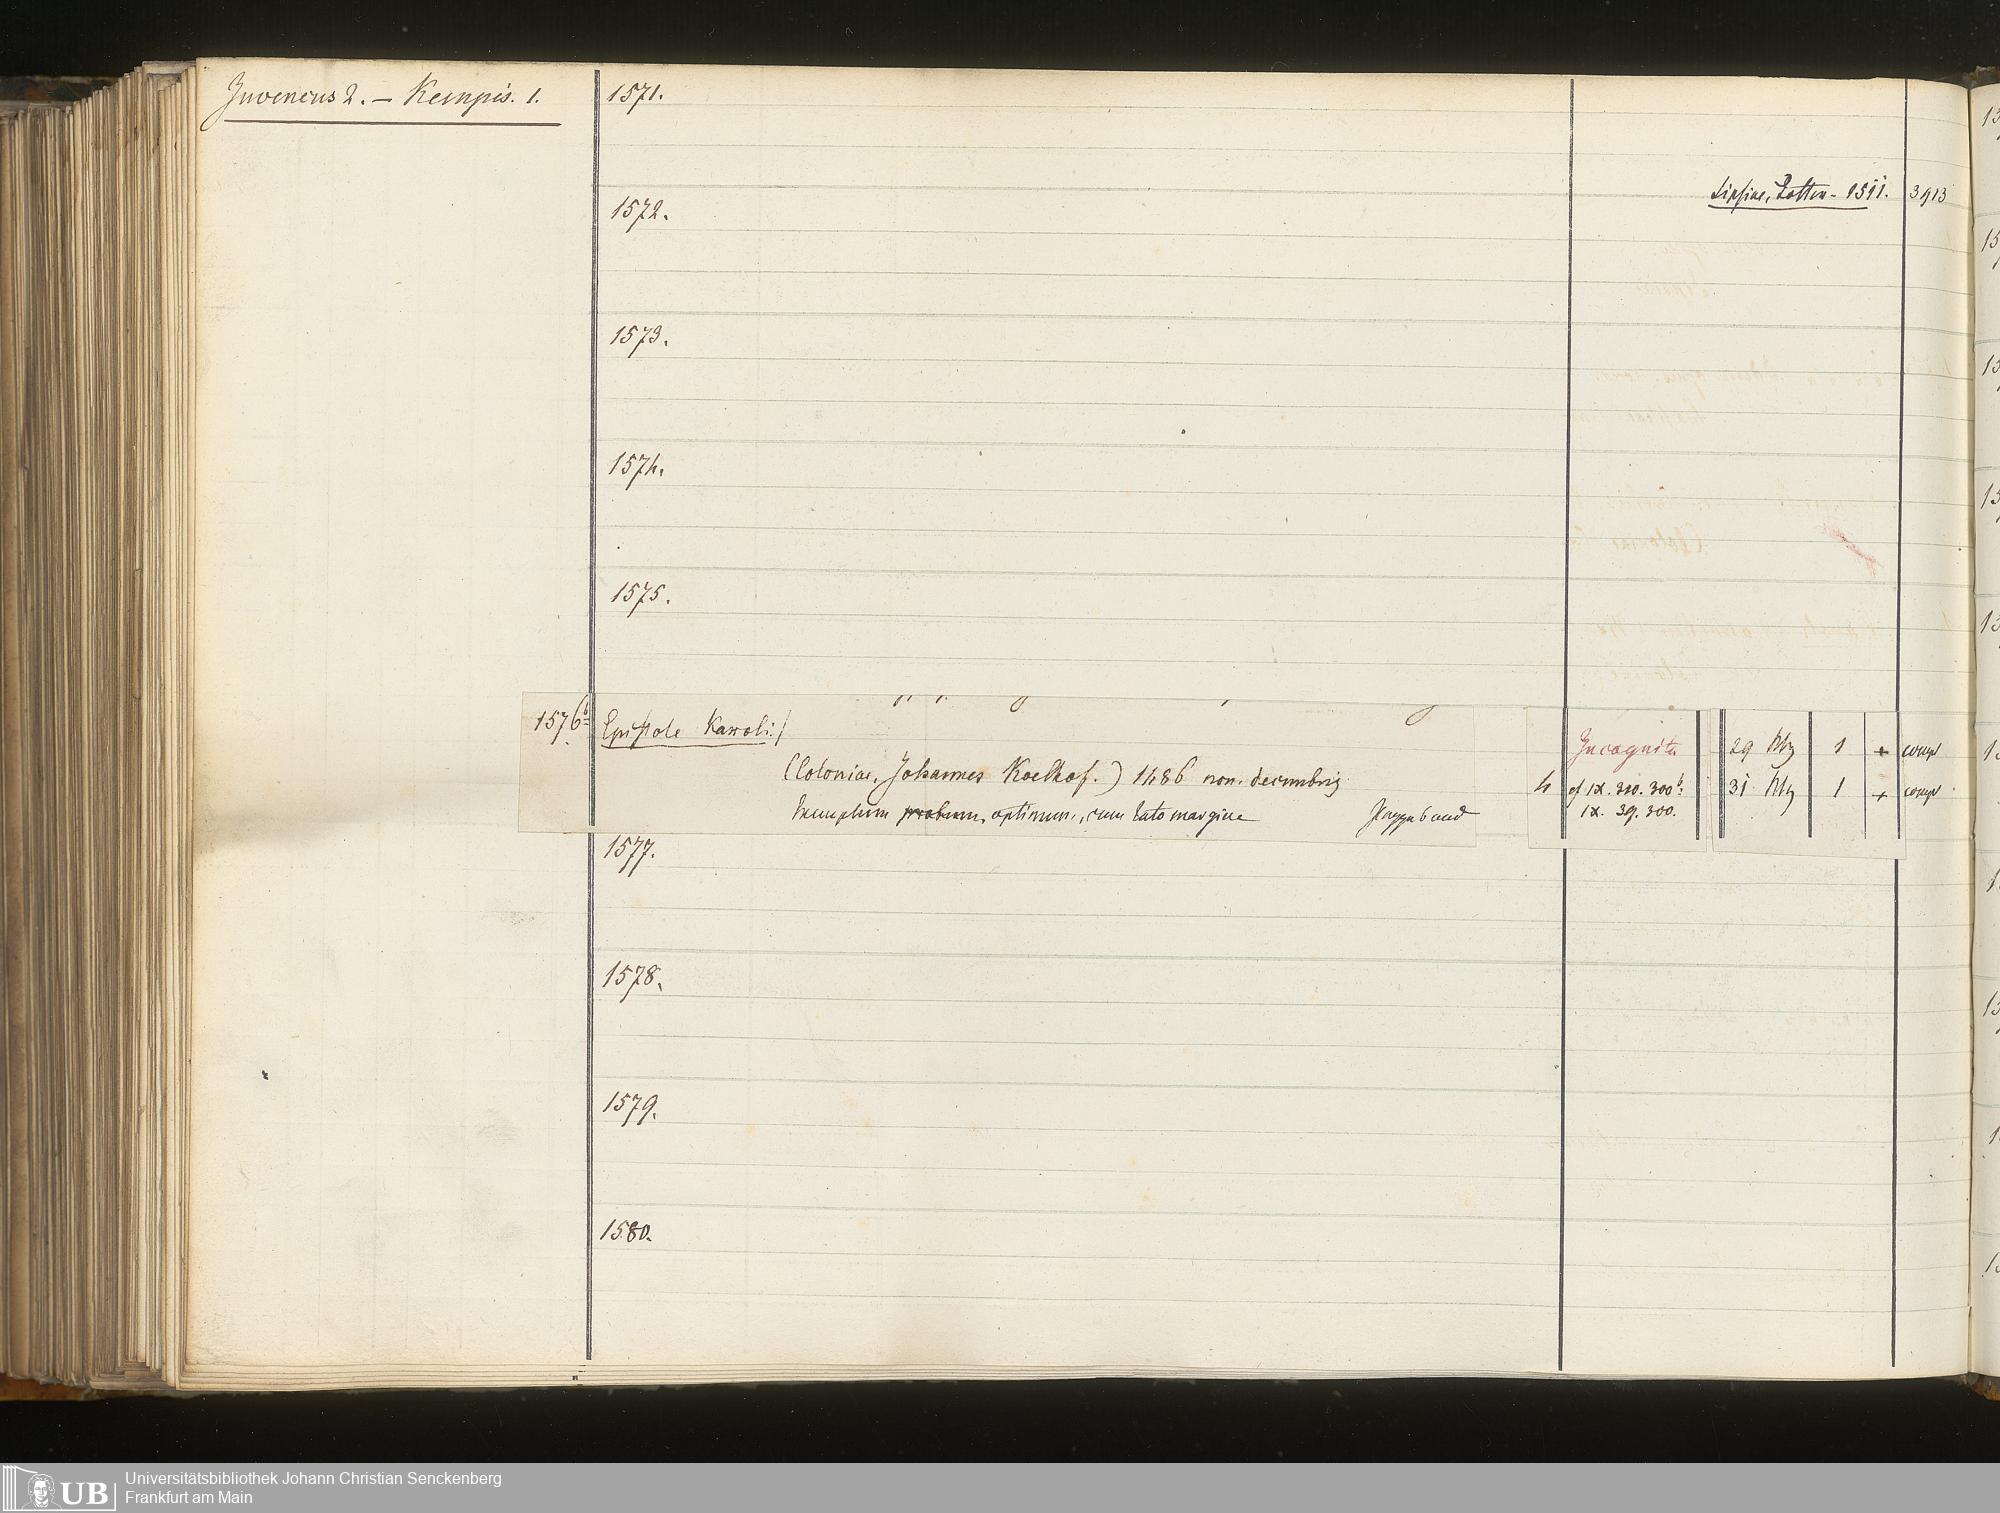 Juvencus 2. – Kempis. 1.
1571.
Lipsiae, Lotter. 1511. 3913
1572.
1573.
1574.
1575.
1576b Epistole Karoli:/
(Coloniae, Johannes Koelhof.) 1486 non. decembris
Exemplum probum, optimum, cum lato margine Pappband
Incognita
4 cf IX. 310. 300b:
IX. 39. 300.
29 Hlz 1 + compl
31 Hlz 1 + compl
1577.
1578.
1579.
1580.
UB
Universitätsbibliothek Johann Christian Senckenberg
Frankfurt am Main